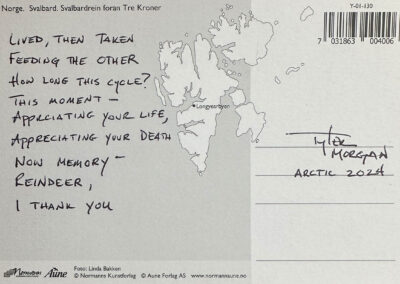 Norge. Svalbard. Svalbardrein foran Tre Kroner
Y-01-130
7 031863 004006
LIVED, THEN TAKEN
FEEDING THE OTHER
HOW LONG THIS CYCLE?
THIS MOMENT —
APPRCIATING YOUR LIFE,
APPRECIATING YOUR DEATH
NOW MEMORY —
REINDEER,
I THANK YOU
Longyearbyen
TYLER
MORGAN
ARCTIC 2024
Normanns Aune
Foto: Linda Bakken
© Normanns Kunstforlag © Aune Forlag AS www.normannsaune.no